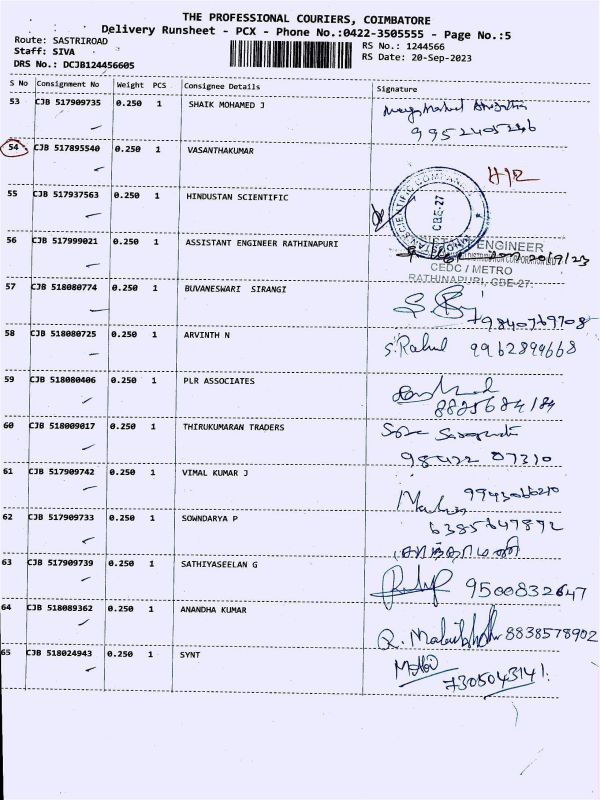 THE PROFESSIONAL COURIERS, COIMBATORE
Delivery Runsheet - PCX - Phone No.:0422-3505555 - Page No.:5
Route: SASTRIROAD
Staff: SIVA
RS No.: 1244566
DRS No.: DCJB124456605
RS Date: 20-Sep-2023
S No Consignment No Weight PCS Consignee Details Signature
53 CJB 517909735 0.250 1 SHAIK MOHAMED J
9952405246
54 CJB 517895540 0.250 1 VASANTHAKUMAR
55 CJB 517937563 0.250 1 HINDUSTAN SCIENTIFIC
HINDUSTAN SCIENTIFIC COMPANY
CBE-27
56 CJB 517999021 0.250 1 ASSISTANT ENGINEER RATHINAPURI
ENGINEER
20/9/23
CEDC / METRO
RATHINAPURI, CBE-27.
57 CJB 518080774 0.250 1 BUVANESWARI SIRANGI
79840769708
58 CJB 518080725 0.250 1 ARVINTH N
S. Rahul 9962894668
59 CJB 518080406 0.250 1 PLR ASSOCIATES
8825684184
60 CJB 518009017 0.250 1 THIRUKUMARAN TRADERS
98422 07310
61 CJB 517909742 0.250 1 VIMAL KUMAR J
9943066210
62 CJB 517909733 0.250 1 SOWNDARYA P
6385647892
63 CJB 517909739 0.250 1 SATHIYASEELAN G
9500832647
64 CJB 518089362 0.250 1 ANANDHA KUMAR
8838578902
65 CJB 518024943 0.250 1 SYNT
7305043141